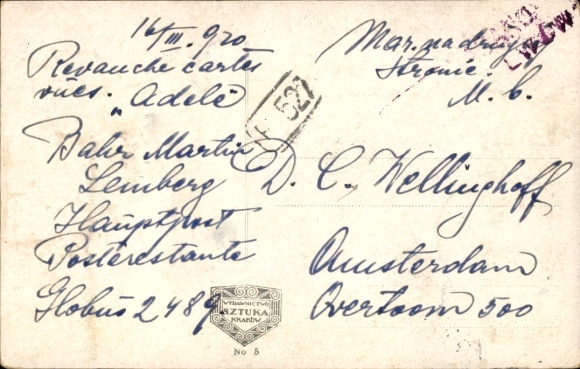 16/III. 920
Revanche cartes
vues. "Adelé"
Bahr Martin
Lemberg
Hauptpost
Posterestante
Globus 2489.
Mar. na drugij
stronie.
M. b.
LWÓW
527
D. C. Wellinghoff
Amsterdam
Overtoom 500
WYDAWNICTWO
SZTUKA
KRAKÓW
No 5